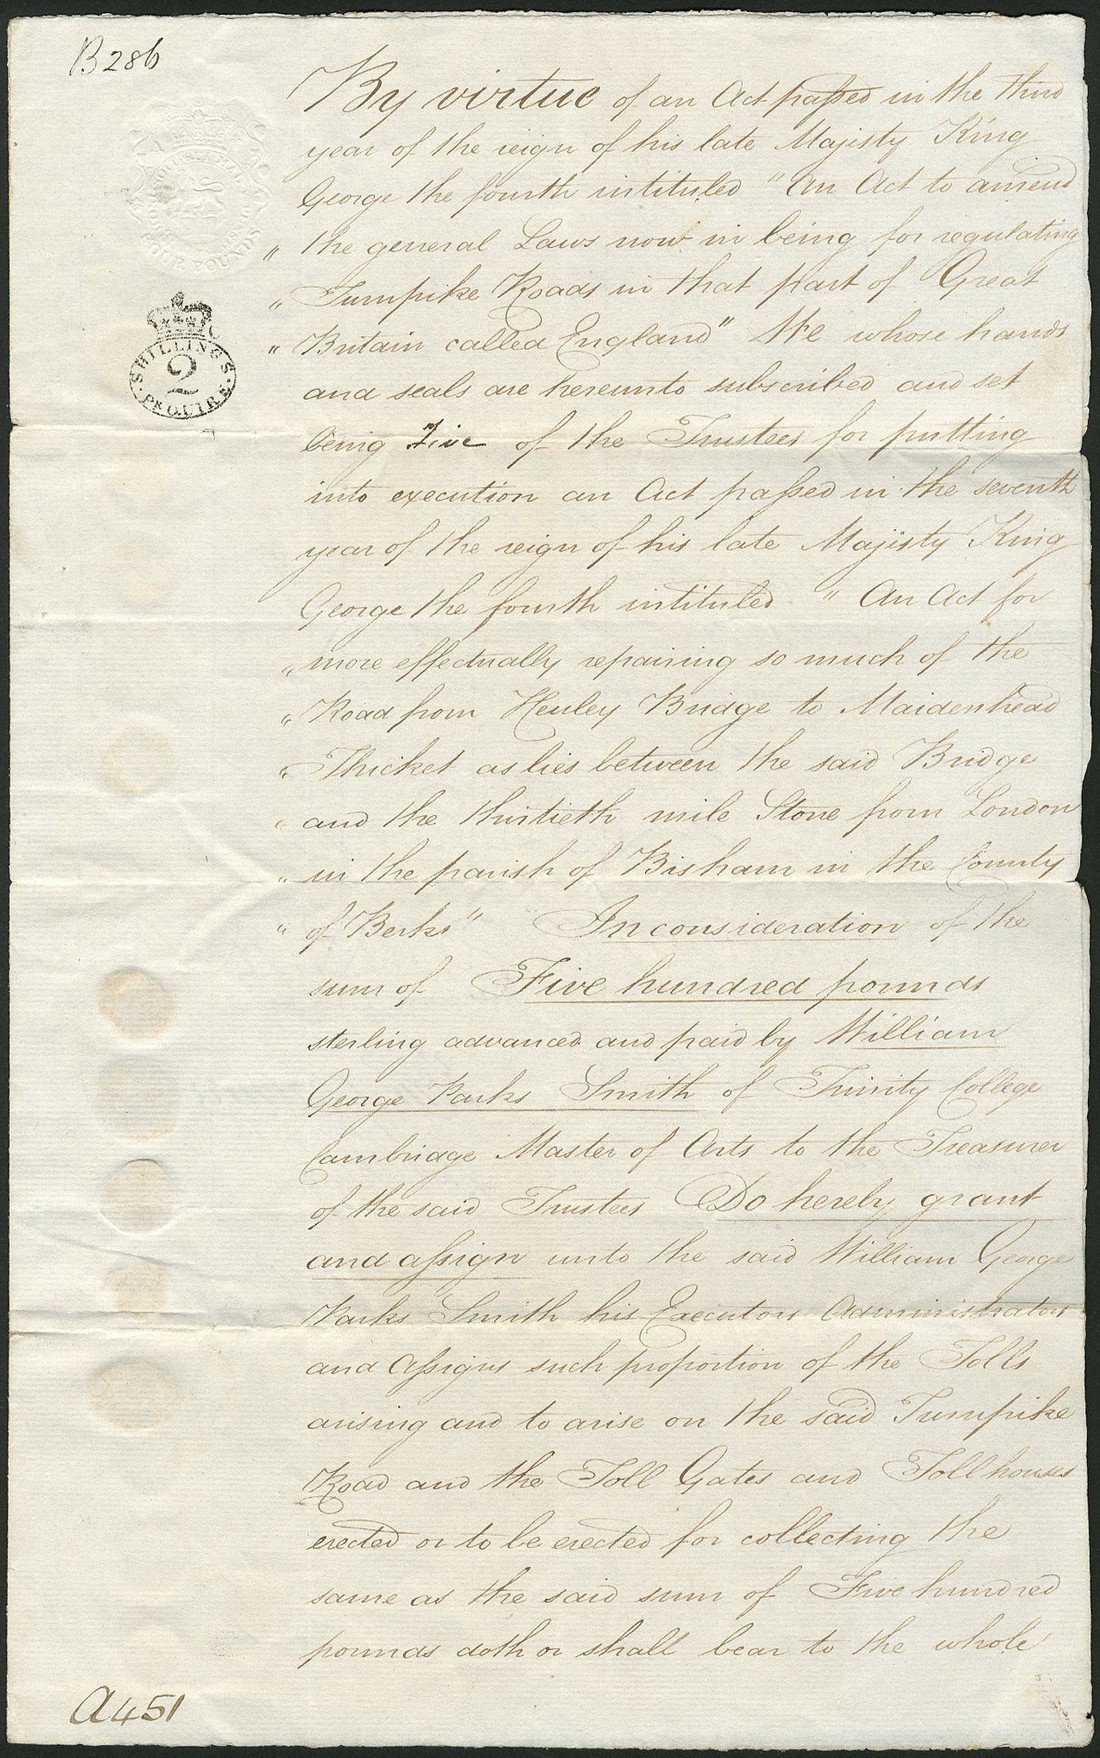 B286
By virtue of an Act paſsed in the third
year of the reign of his late Majesty King
George the fourth intituled " An Act to amend
" the general Laws now in being for regulating
" Turnpike Roads in that part of Great
" Britain called England" We whose hands
and seals are hereunto subscribed and set
being Five of the Trustees for putting
into execution an Act paſsed in the seventh
year of the reign of his late Majesty King
George the fourth intituled " An Act for
" more effectually repairing so much of the
" Road from Henley Bridge to Maidenhead
" Thicket as lies between the said Bridge
" and the thirtieth mile Stone from London
" in the parish of Bisham in the County
" of Berks" In consideration of the
sum of Five hundred pounds
sterling advanced and paid by William
George Parks Smith of Trinity College
Cambridge Master of Arts to the Treasurer
of the said Trustees Do hereby grant
and aſsign unto the said William George
Parks Smith his Executors Administrators
and Aſsigns such proportion of the Tolls
arising and to arise on the said Turnpike
Road and the Toll Gates and Toll houses
erected or to be erected for collecting the
same as the said sum of Five hundred
pounds doth or shall bear to the whole
FOUR POUNDS
SHILLINGS
2
PR QUIRE
A451